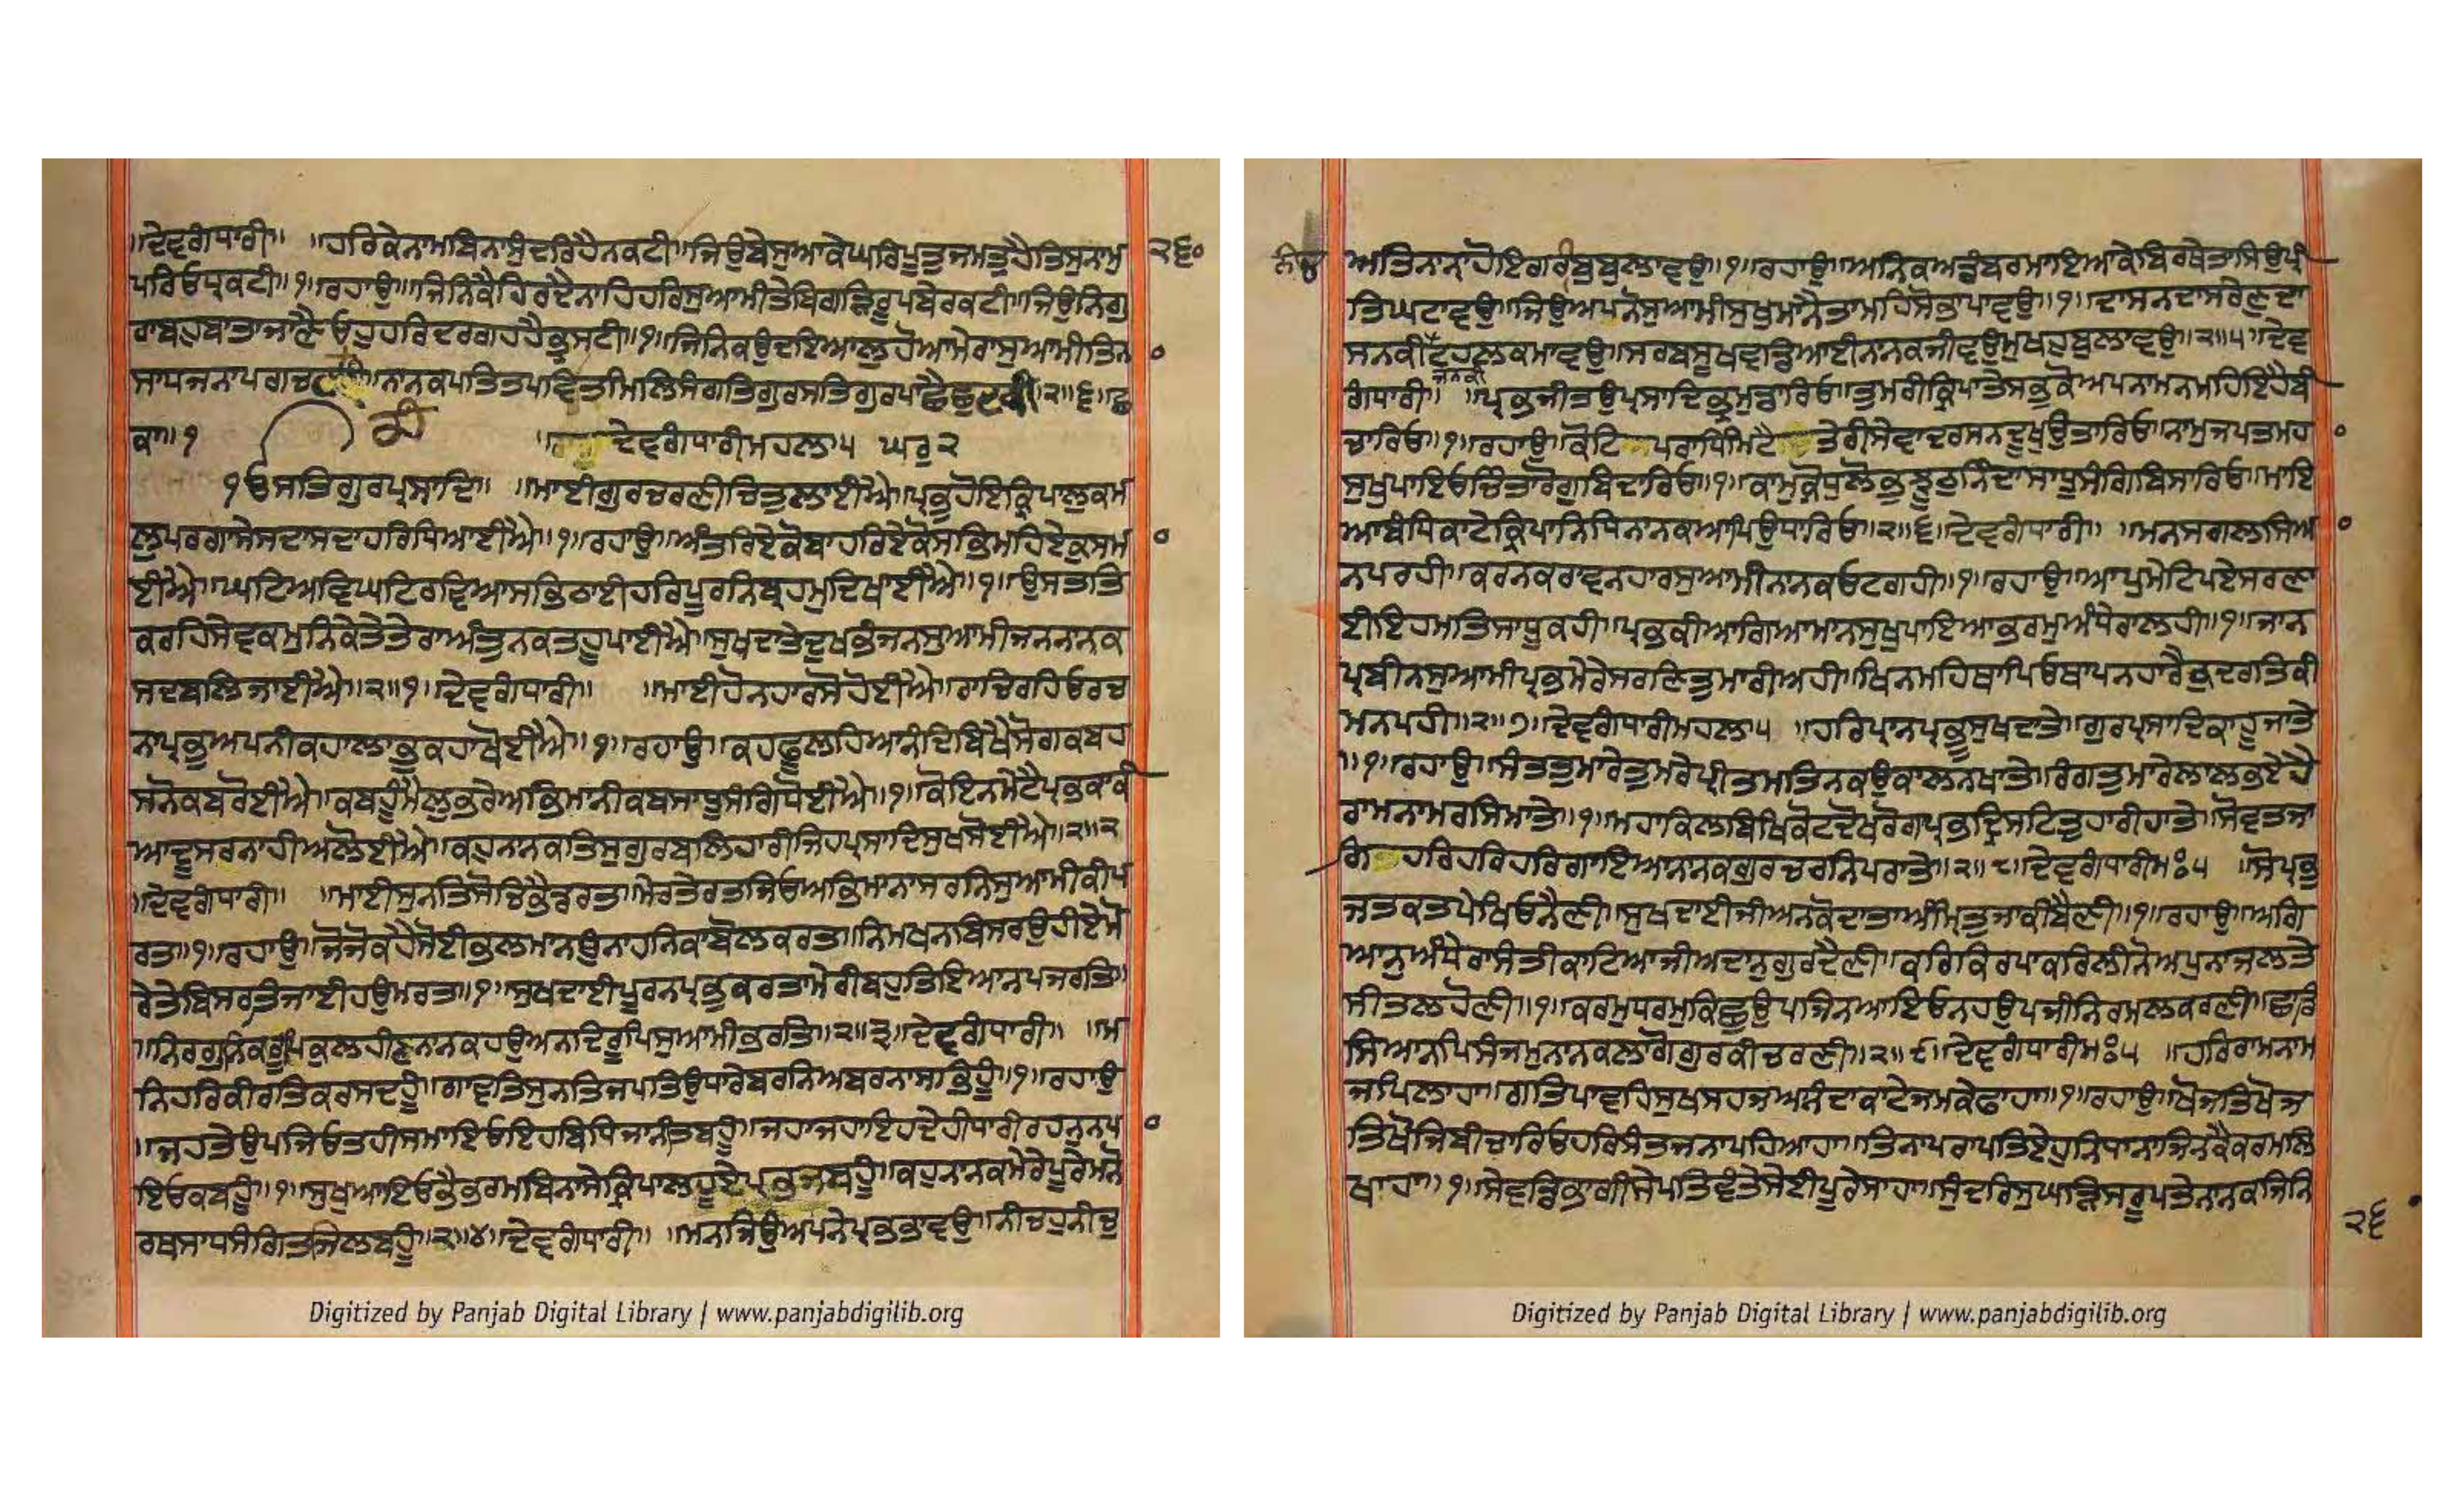 ॥ਦੇਵਗੰਧਾਰੀ॥ ॥ਹਰਿਕੇਨਾਮਬਿਨਾਸੁੰਦਰਿਹੈਨਕਟੀ॥ਜਿਉਬੇਸੁਆਕੇਘਰਿਪੂਤੁਜਮਤੁਹੈਤਿਸੁਨਾਮੁ ੨੬੦
ਪਰਿਓਧ੍ਰਕਟੀ॥੧॥ਰਹਾਉ॥ਜਿਨਿਕੈਹਿਰਦੈਨਾਹਿਹਰਿਸੁਆਮੀਤੇਬਿਗੜਿਰੂਪਬੇਰਕਟੀ॥ਜਿਉਨਿਗੁ
ਰਾਬਹੁਬਾਤਾਜਾਣੈਓਹੁਹਰਿਦਰਗਹਹੈਭ੍ਰਸਟੀ॥੧॥ਜਿਨਿਕਉਦਇਆਲੁਹੋਆਮੇਰਾਸੁਆਮੀਤਿਨ
ਸਾਧਜਨਾਪਗਚ ॥ਨਾਨਕਪਤਿਤਪਵਿਤਮਿਲਿਸੰਗਤਿਗੁਰਸਤਿਗੁਰਪਾਛੈਛੁਟਕੀ॥੨॥੬॥ਛ
ਕਾ॥੧ ਦੇਵਗੰਧਾਰੀਮਹਲਾ੫ ਘਰੁ੨
੧ਓਸਤਿਗੁਰਪ੍ਰਸਾਦਿ॥ ॥ਮਾਈਗੁਰਚਰਣੀਚਿਤੁਲਾਈਐ॥ਪ੍ਰਭੁਹੋਇਕ੍ਰਿਪਾਲੁਕਮ
ਲੁਪਰਗਾਸੇਸਦਾਸਦਾਹਰਿਧਿਆਈਐ॥੧॥ਰਹਾਉ॥ਅੰਤਰਿਏਕੋਬਾਹਰਿਏਕੋਸਭਿਮਹਿਏਕੁਸਮ
ਈਐ॥ਘਟਿਅਵਿਘਟਿਰਵਿਆਸਭਿਠਾਈਹਰਿਪੂਰਨਿਬ੍ਰਹਮੁਦਿਖਾਈਐ॥੧॥ਉਸਤਤਿ
ਕਰਹਿਸੇਵਕਮੁਨਿਕੇਤੇਤੇਰਾਅੰਤੁਨਕਤਹੂਪਾਈਐ॥ਸੁਖਦਾਤੇਦੁਖਭੰਜਨਸੁਆਮੀਜਨਨਾਨਕ
ਸਦਬਲਿਜਾਈਐ॥੨॥੧॥ਦੇਵਗੰਧਾਰੀ॥ ॥ਮਾਈਹੋਨਹਾਰਸੋਹੋਈਐ॥ਰਾਚਿਰਹਿਓਰਚ
ਨਾਪ੍ਰਭੁਅਪਨੀਕਹਾਲਾਭੁਕਹਾਖੋਈਐ॥੧॥ਰਹਾਉ॥ਕਹਫੂਲਹਿਆਨੰਦਿਬਿਖੈਸੋਗਕਬਹ
ਸਨੋਕਬਰੋਈਐ॥ਕਬਹੂੰਮੈਲੁਭਰੇਅਭਿਮਾਨੀਕਬਸਾਧੂਸੰਗਿਧੋਈਐ॥੧॥ਕੋਇਨਮੇਟੈਪ੍ਰਭਕਾਕੀ
ਆਦੂਸਰਨਾਹੀਅਲੋਈਐ॥ਕਹੁਨਾਨਕਤਿਸੁਗੁਰਬਲਿਹਾਰੀਜਿਹਪ੍ਰਸਾਦਿਸੁਖਸੋਈਐ॥੨॥੨
॥ਦੇਵਗੰਧਾਰੀ॥ ॥ਮਾਈਸੁਨਤਿਸੋਚਿਭੈਡਰਤਾ॥ਮੇਰਤੇਰਤਜਿਓਅਭਿਮਾਨਾਸਰਨਿਸੁਆਮੀਕੀਪ
ਰਤਾ॥੧॥ਰਹਾਉ॥ਜੋਜੋਕਹੈਸੋਈਭਲਮਾਨਉਨਾਹਨਿਕਾਬੋਲਕਰਤਾ॥ਨਿਮਖਨਬਿਸਰਉਹੀਏਮੋ
ਰੇਤੇਬਿਸਰਤਜਾਈਹਉਮਰਤਾ॥੧॥ਸੁਖਦਾਈਪੂਰਨਪ੍ਰਭੁਕਰਤਾਮੇਰੀਬਹੁਤਿਇਆਨਪਜਰਤਿ॥
॥ਨਿਰਗੁਨਿਕਰੂਪਿਕੁਲਹੀਣਨਾਨਕਹਉਅਨਦਿਰੂਪਿਸੁਆਮੀਭਰਤਿ॥੨॥੩॥ਦੇਵਗੰਧਾਰੀ॥ ॥ਮ
ਨਿਹਰਿਕੀਰਤਿਕਰਸਦਹੂੰ॥ਗਾਵਤਿਸੁਨਤਿਜਪਤਿਉਧਾਰੇਬਰਨਿਅਬਰਨਾਸਭਿਹੂੰ॥੧॥ਰਹਾਉ
॥ਜਹਤੇਉਪਜਿਓਤਹੀਸਮਾਇਓਇਹਬਿਧਿਜਾਨੀਤਬਹੂੰ॥ਜਹਾਜਹਾਇਹਦੇਹੀਧਾਰੀਰਹਨੁਨਪ
ਇਓਕਬਹੂੰ॥੧॥ਸੁਖੁਆਇਓਭੈਭਰਮਬਿਨਾਸੇਕ੍ਰਿਪਾਲਹੂਏਪ੍ਰਭਜਬਹੂੰ॥ਕਹੁਨਾਨਕਮੇਰੇਪੂਰੇਮਨੋ
ਰਥਸਾਧਸੰਗਿਤਜਿਲਬਹੂੰ॥੨॥੪॥ਦੇਵਗੰਧਾਰੀ॥ ॥ਮਨਜਿਉਅਪਨੇਪ੍ਰਭਭਾਵਉ॥ਨੀਚਹੁਨੀਚੁ
Digitized by Panjab Digital Library | www.panjabdigilib.org
ਅਤਿਨਾਨਾਹੋਇਗਰੀਬੁਬੁਲਾਵਉ॥੧॥ਰਹਾਉ॥ਅਨਿਕਅਡੰਬਰਮਾਇਆਕੇਬਿਰਥੇਤਾਸਿਉਪ੍ਰੀ
ਤਿਘਟਾਵਉ॥ਜਿਉਅਪਨੋਸੁਆਮੀਸੁਖੁਮਾਨੈਤਾਮਹਿਸੋਭਾਪਾਵਉ॥੧॥ਦਾਸਨਦਾਸਰੇਣੁਦਾ
ਸਨਕੀਟਹਲਕਮਾਵਉ॥ਸਰਬਸੂਖਵਡਿਆਈਨਾਨਕਜੀਵਉਮੁਖਹੁਬੁਲਾਵਉ॥੨॥੫॥ਦੇਵ
ਜਨਕੀ
ਗੰਧਾਰੀ॥ ॥ਪ੍ਰਭਜੀਤਉਪ੍ਰਸਾਦਿਭ੍ਰਮੁਡਾਰਿਓ॥ਤੁਮਰੀਕ੍ਰਿਪਾਤੇਸਭੁਕੋਅਪਨਾਮਨਮਹਿਇਹੈਬੀ
ਚਾਰਿਓ॥੧॥ਰਹਾਉ॥ਕੋਟਿ ਪਰਾਧਿਮਿਟੈ ਤੇਰੀਸੇਵਾਦਰਸਨਦੂਖੁਉਤਾਰਿਓ॥ਨਾਮੁਜਪਤਮਹ
ਸੁਖੁਪਾਇਓਚਿੰਤਾਰੋਗੁਬਿਦਾਰਿਓ॥੧॥ਕਾਮੁਕ੍ਰੋਧੁਲੋਭੁਝੂਠੁਨਿੰਦਾਸਾਧੂਸੰਗਿਬਿਸਾਰਿਓ॥ਮਾਇ
ਆਬੰਧਿਕਾਟੇਕ੍ਰਿਪਾਨਿਧਿਨਾਨਕਆਪਿਉਧਾਰਿਓ॥੨॥੬॥ਦੇਵਗੰਧਾਰੀ॥ ॥ਮਨਸਗਲਸਿਅ
ਨਪਰਹੀ॥ਕਰਨਕਰਾਵਨਹਾਰਸੁਆਮੀਨਾਨਕਓਟਗਹੀ॥੧॥ਰਹਾਉ॥ਆਪੁਮੇਟਿਪਏਸਰਣਾ
ਈਇਹਮਤਿਸਾਧੂਕਹੀ॥ਪ੍ਰਭਕੀਆਗਿਆਮਾਨਸੁਖੁਪਾਇਆਭਰਮੁਅੰਧੇਰਾਲਹੀ॥੧॥ਜਾਨ
ਪ੍ਰਬੀਨਸੁਆਮੀਪ੍ਰਭਮੇਰੇਸਰਣਿਤੁਮਾਰੀਅਹੀ॥ਖਿਨਮਹਿਥਾਪਿਓਥਾਪਨਹਾਰੈਕੁਦਰਤਿਕੀ
ਮਨਪਹੀ॥੨॥੭॥ਦੇਵਗੰਧਾਰੀਮਹਲਾ੫ ॥ਹਰਿਪ੍ਰਾਨਪ੍ਰਭੂਸੁਖਦਾਤੇ॥ਗੁਰਪ੍ਰਸਾਦਿਕਾਹੂਜਾਤੇ
॥੧॥ਰਹਾਉ॥ਸੰਤਤੁਮਾਰੇਤੁਮਰੇਪ੍ਰੀਤਮਤਿਨਕਉਕਾਲਨਖਾਤੇ॥ਰੰਗਤੁਮਾਰੇਲਾਲਭਏਹੈ
ਰਾਮਨਾਮਰਸਿਮਾਤੇ॥੧॥ਮਹਾਕਿਲਬਿਖਿਕੋਟਦੋਖਰੋਗਪ੍ਰਭਦ੍ਰਿਸਟਿਤੁਹਾਰੀਹਾਤੇ॥ਸੋਵਤਜਾ
ਗਿ ਹਰਿਹਰਿਹਰਿਗਾਇਆਨਾਨਕਗੁਰਚਰਨਿਪਰਾਤੇ॥੨॥੮॥ਦੇਵਗੰਧਾਰੀਮਃ੫ ॥ਸੋਪ੍ਰਭੁ
ਜਤਕਤਪੇਖਿਓਨੈਣੀ॥ਸੁਖਦਾਈਜੀਅਨਕੋਦਾਤਾਅੰਮ੍ਰਿਤੁਜਾਕੀਬੈਣੀ॥੧॥ਰਹਾਉ॥ਅਗਿ
ਆਨੁਅੰਧੇਰਾਸੰਤੀਕਾਟਿਆਜੀਅਦਾਨੁਗੁਰਦੈਣੀ॥ਕਰਿਕਿਰਪਾਕਰਿਲੀਨੋਅਪੁਨਾਜਲਤੇ
ਸੀਤਲਹੋਣੀ॥੧॥ਕਰਮੁਧਰਮੁਕਿਛੁਉਪਜਿਨਆਇਓਨਹਉਪਜੀਨਿਰਮਲਕਰਣੀ॥ਛਾਡਿ
ਸਿਆਨਪਿਸੰਜਮੁਨਾਨਕਲਾਗੋਗੁਰਕੀਚਰਣੀ॥੨॥੯॥ਦੇਵਗੰਧਾਰੀਮਃ੫ ॥ਹਰਿਰਾਮਨਾਮ
ਜਪਿਲਾਹਾ॥ਗਤਿਪਾਵਹਿਸੁਖਸਹਜਅਨੰਦਾਕਾਟੇਜਮਕੇਫਾਹਾ॥੧॥ਰਹਾਉ॥ਖੋਜਤਿਖੋਜ
ਤਿਖੋਜਿਬੀਚਾਰਿਓਹਰਿਸੰਤਜਨਾਪਹਿਆਹਾ॥ਤਿਨਾਪਰਾਪਤਿਏਹੁਨਿਧਾਨਾਜਿਨਕੈਕਰਮਲਿ
ਖਾਹਾ॥੧॥ਸੇਵਡਿਭਾਗੀਸੇਪਤਿਵੰਤੇਸੇਈਪੂਰੇਸਾਹਾ॥ਸੁੰਦਰਿਸੁਘੜਿਸਰੂਪਤੇਨਾਨਕਜਿਨਿ
੨੬
Digitized by Panjab Digital Library | www.panjabdigilib.org